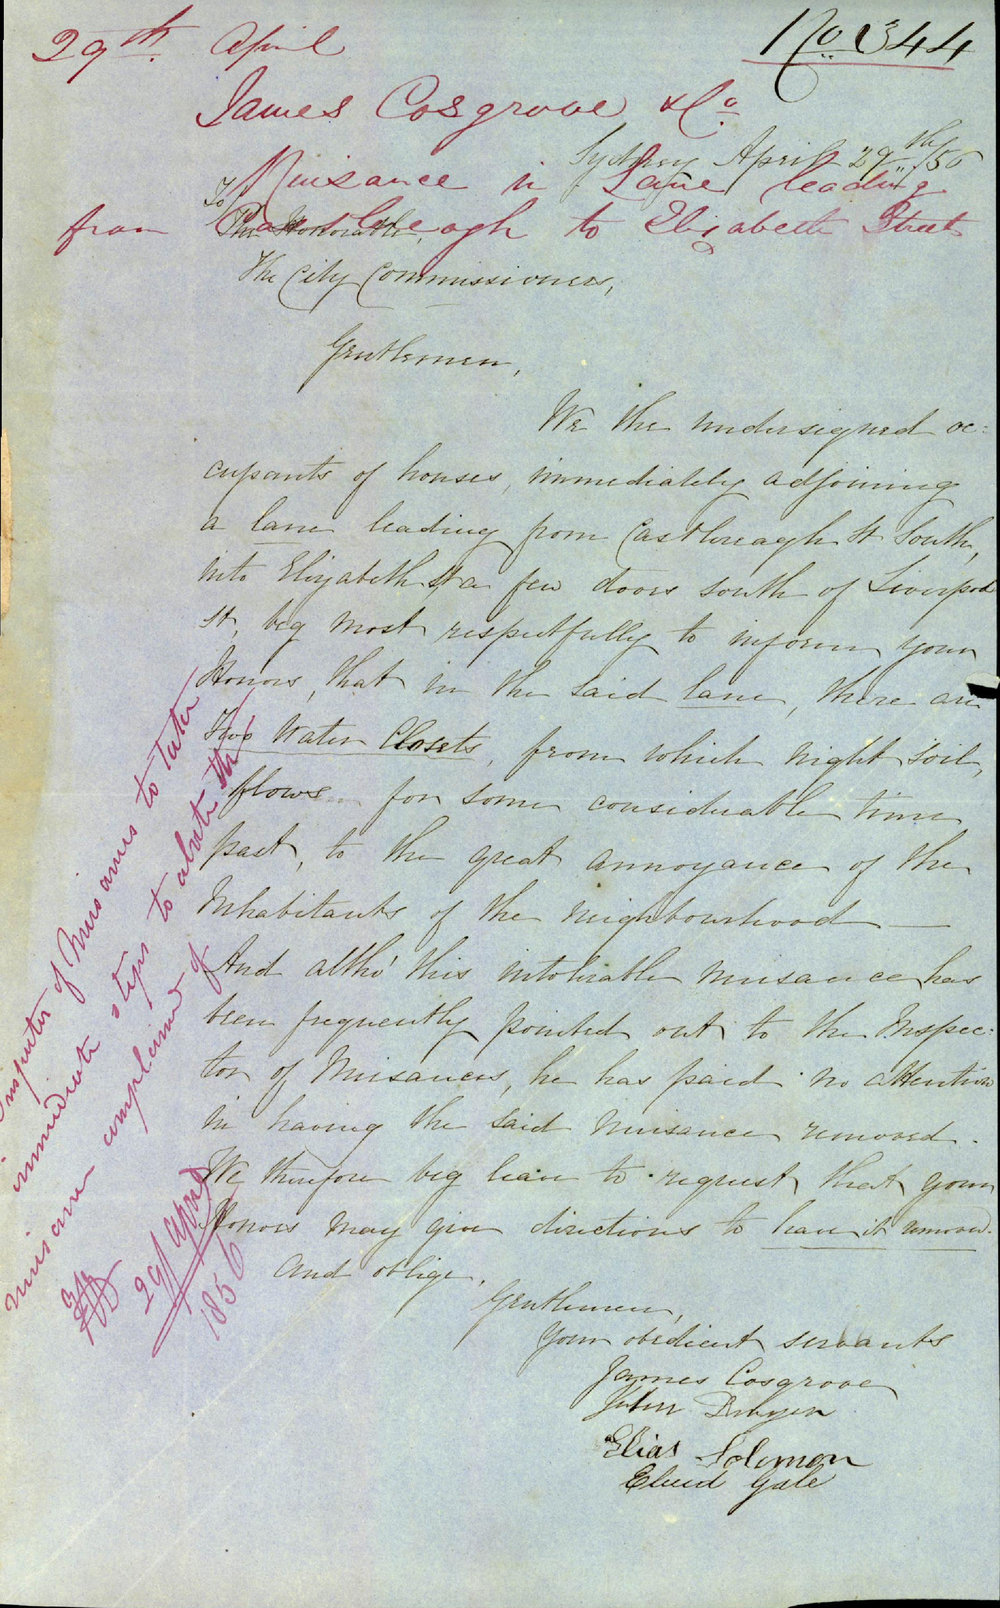 29th April
No 344
James Cosgrove & Co.
Nuisance in Lane leading
from Castlereagh to Elizabeth Street
Sydney April 29th /56
To
The Honorable,
The City Commissioners,
Gentlemen,
We the undersigned oc:
cupants of houses, immediately adjoining
a lane leading from Castlereagh St South,
into Elizabeth St a few doors south of Liverpool
St, beg most respectfully to inform your
Honors, that in the said lane, there are
Two Water Closets, from which night soil,
flows for some considerable time
past, to the great annoyance of the
Inhabitants of the neighbourhood —
And altho' this intolerable nuisance has
been frequently pointed out to the Inspec:
tor of Nuisances, he has paid no attention
in having the said nuisance removed.
We therefore beg leave to request that your
Honors may give directions to have it removed.
And oblige,
Gentlemen,
Your obedient servants
James Cosgrove
John Dwyer
Elias Solomon
Gale
Inspector of Nuisances to take
immediate steps to abate the
nuisance complained of
29/ April
1856